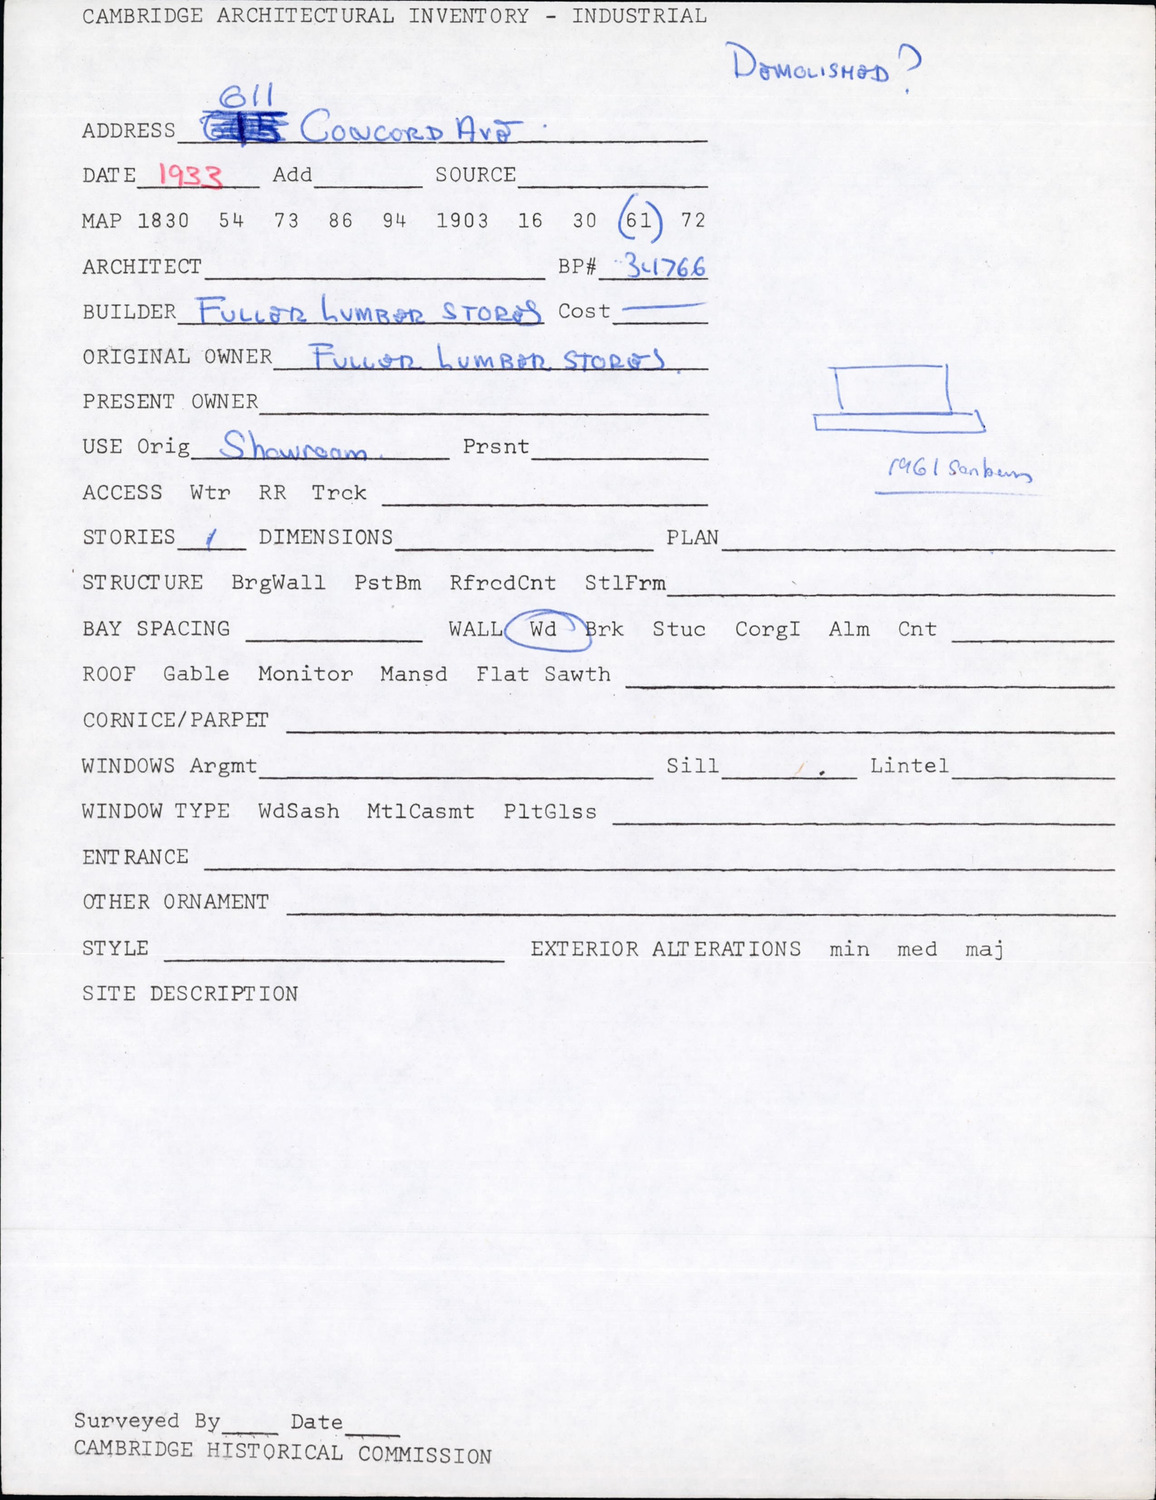 CAMBRIDGE ARCHITECTURAL INVENTORY - INDUSTRIAL
DEMOLISHED?
611
ADDRESS CONCORD AVE
DATE 1933 Add SOURCE
MAP 1830 54 73 86 94 1903 16 30 61 72
ARCHITECT BP# 34766
BUILDER FULLER LUMBER STORES Cost
ORIGINAL OWNER FULLER LUMBER STORES
PRESENT OWNER
USE Orig Showroom Prsnt
1961 Sanborn
ACCESS Wtr RR Trck
STORIES 1 DIMENSIONS PLAN
STRUCTURE BrgWall PstBm RfrcdCnt StlFrm
BAY SPACING WALL Wd Brk Stuc CorgI Alm Cnt
ROOF Gable Monitor Mansd Flat Sawth
CORNICE/PARPET
WINDOWS Argmt Sill Lintel
WINDOW TYPE WdSash MtlCasmt PltGlss
ENTRANCE
OTHER ORNAMENT
STYLE EXTERIOR ALTERATIONS min med maj
SITE DESCRIPTION
Surveyed By Date
CAMBRIDGE HISTORICAL COMMISSION